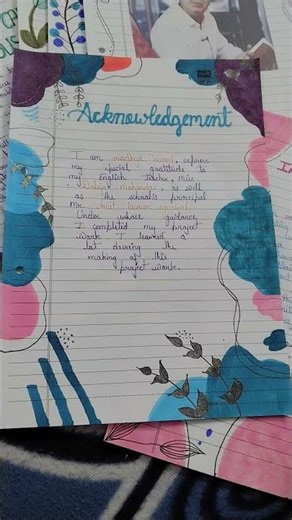 Acknowledgement
I am express
my special gratitude to
my English teacher, Miss
as well
as the school's principal
Mr.
Under whose guidance
I completed my project
work. I learned a
lot during the
making of this
project work.